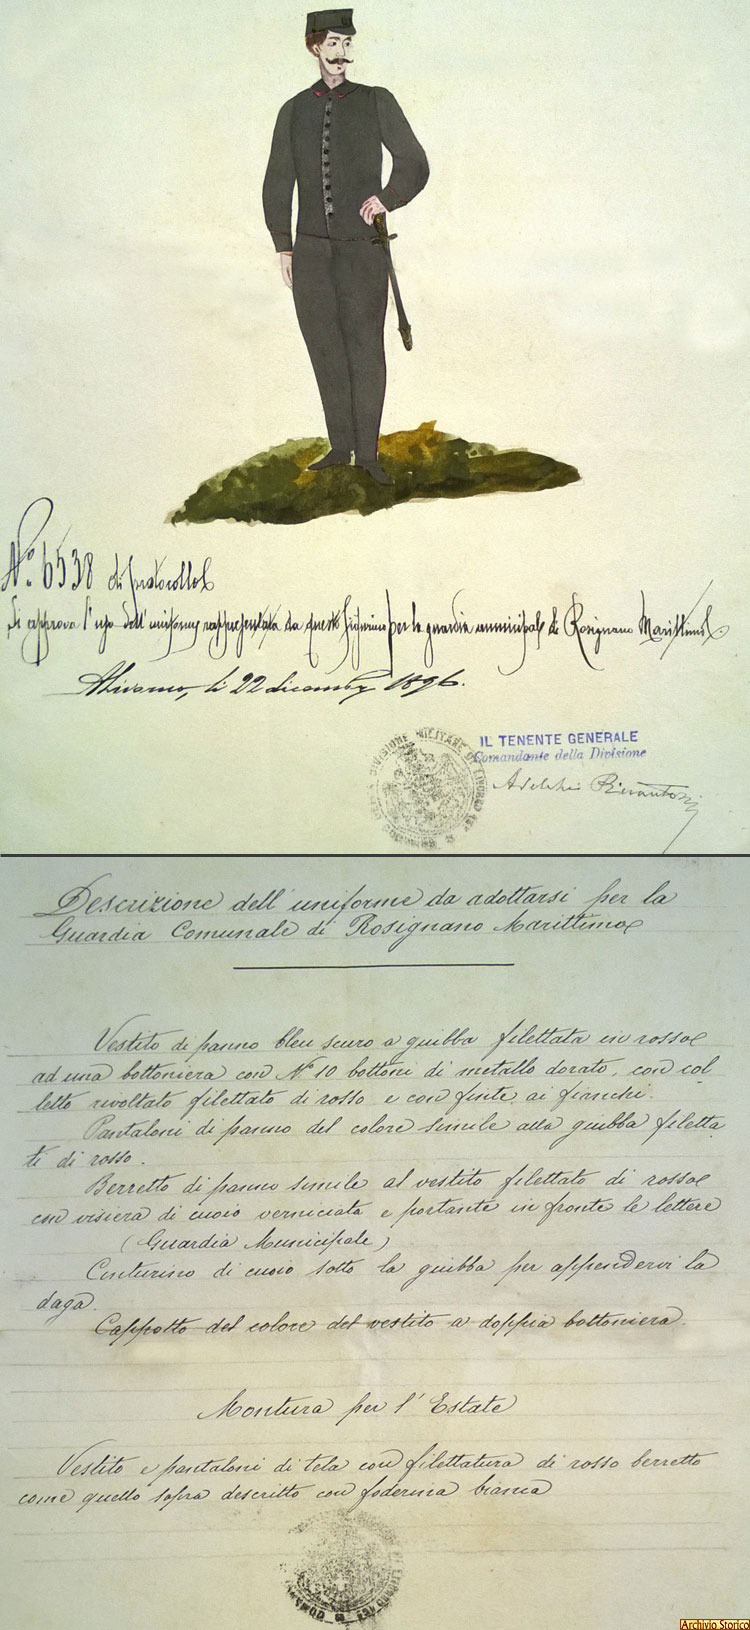 No. 6538 di protocollo
Si approva l'uso dell'uniforme rappresentata da questo figurino per la guardia municipale di Rosignano Marittimo.
Livorno, li 22 dicembre 1896.
DIVISIONE MILITARE DI LIVORNO
IL TENENTE GENERALE
Comandante della Divisione
Adelchi Pierantoni
Descrizione dell'uniforme da adottarsi per la
Guardia Comunale di Rosignano Marittimo
Vestito di panno bleu scuro a giubba filettata in rosso
ad una bottoniera con No 10 bottoni di metallo dorato, con col-
letto rivoltato filettato di rosso e con finte ai fianchi.
Pantaloni di panno del colore simile alla giubba filetta
ti di rosso.
Berretto di panno simile al vestito filettato di rosso
con visiera di cuoio verniciata e portante in fronte le lettere
(Guardia Municipale)
Cinturino di cuoio sotto la giubba per appendervi la
daga.
Cappotto del colore del vestito a doppia bottoniera.
Montura per l'Estate
Vestito e pantaloni di tela con filettatura di rosso berretto
come quello sopra descritto con foderina bianca
Archivio Storico